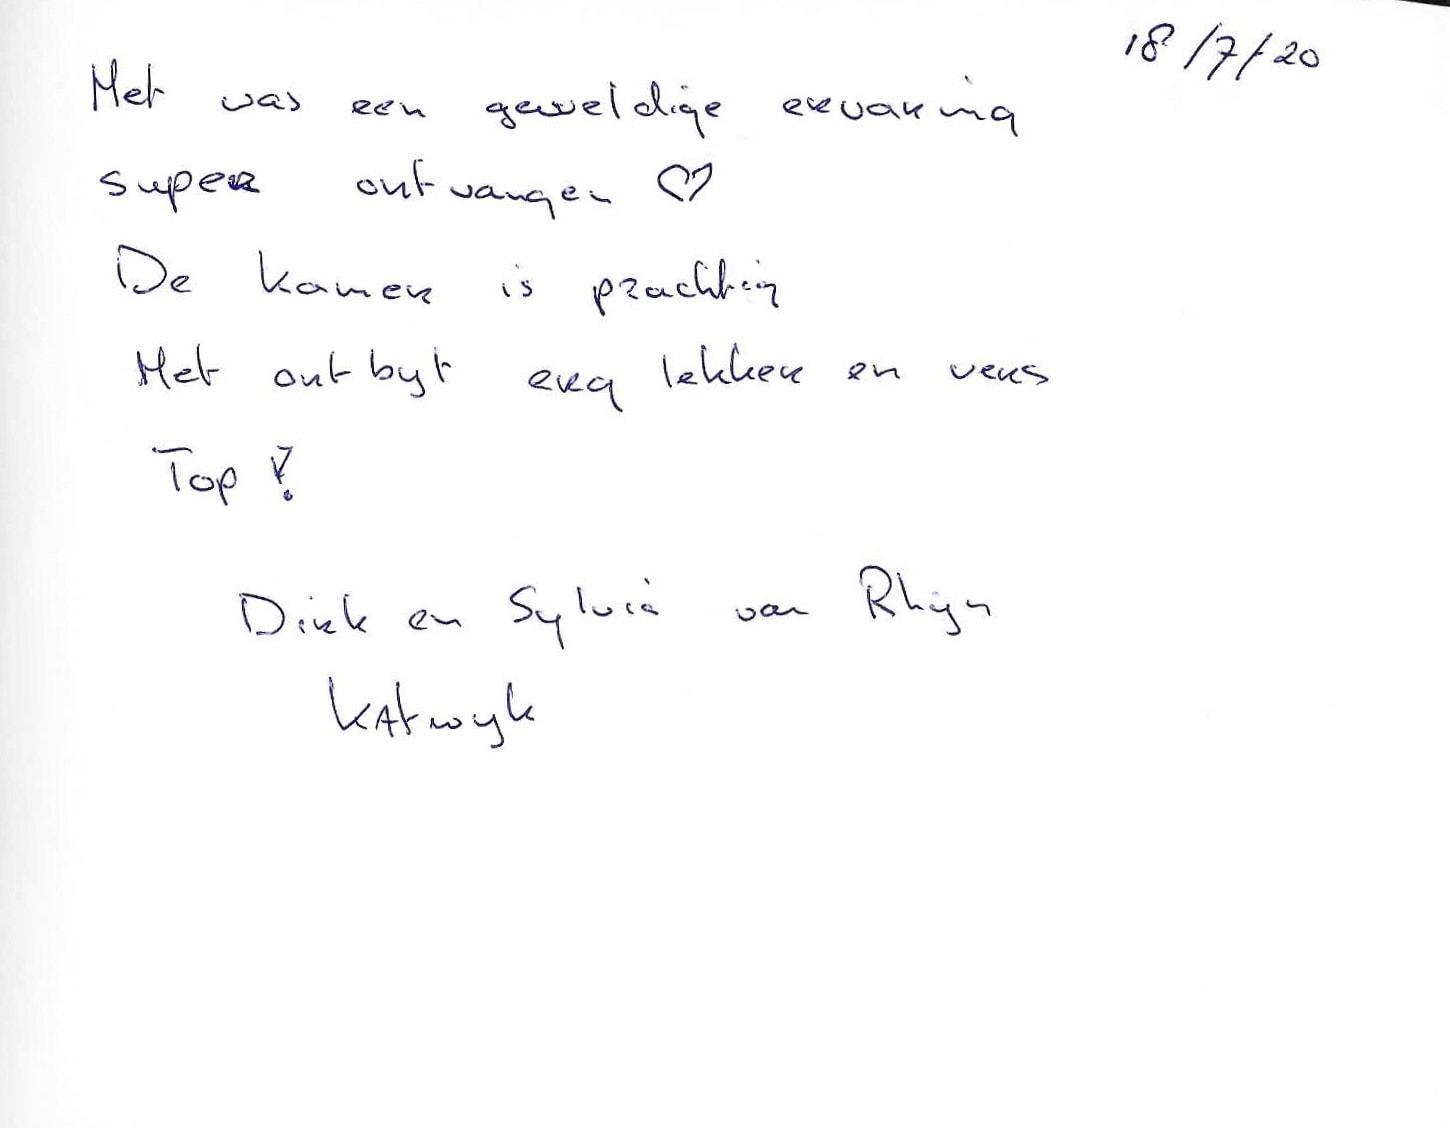 18/7/20
Het was een geweldige ervaring
super ontvangen ♡
De kamer is prachtig
Het ontbyt erg lekker en vers
Top!
Dirk en Sylvia van Rhijn
KAtwyk